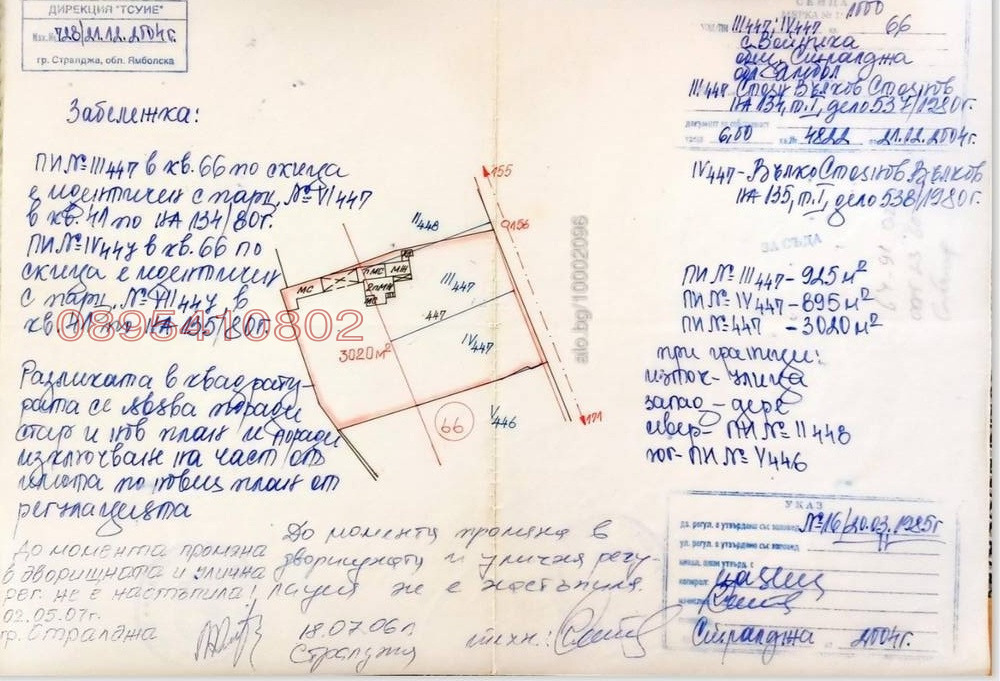 ДИРЕКЦИЯ "ТСУИЕ"
Изх.№ 728/21.12.2004г.
гр. Стралджа, обл. Ямболска
Забележка:
ПИ № III447 в кв. 66 по скица
е идентичен с парц. № VI 447
в кв. 41 по НА 134/80г.
ПИ № IV447 в кв. 66 по
скица е идентичен
с парц. № VII 447 в
кв. 41 по НА 135/80г.
0895410802
Разликата в квадрату-
рата се явява поради
стар и нов план и поради
изключване на част от
имота по новия план от
регулацията
До момента промяна
в дворищната и улична
рег. не е настъпила!
02.05.07г.
гр. Стралджа
До момента промяна в
дворищната и улична регу-
лация не е настъпила.
18.07.06г.
Стралджа
техн.:
155
9156
II 448
МС
ПМС
МН
2пМЖ
МС
III 447
447
IV 447
3020 м²
66
V 446
171
alo.bg/10002096
СКИЦА
МЕРКА № 1: 1000
III 447; IV 447 66
с. Войника
общ. Стралджа
обл. Ямбол
III 447 Стоян Вълков Стоянов
НА 134, т. I, дело 537/1980г.
документ за собственост
6,00 № 4822 21.12.2004г.
IV 447 - Вълко Стоянов Вълков
НА 135, т. I, дело 538/1980г.
ЗА СЪДА
ПИ № III 447 - 925 м²
ПИ № IV 447 - 895 м²
ПИ № 447 - 3020 м²
при граници:
изток - улица
запад - дере
север - ПИ № II 448
юг - ПИ № V 446
УКАЗ
дв. регул. е утвърдена със заповед № 16/20.03.1985г
ул. регул. е утвърдена със заповед
Стралджа 2004г.